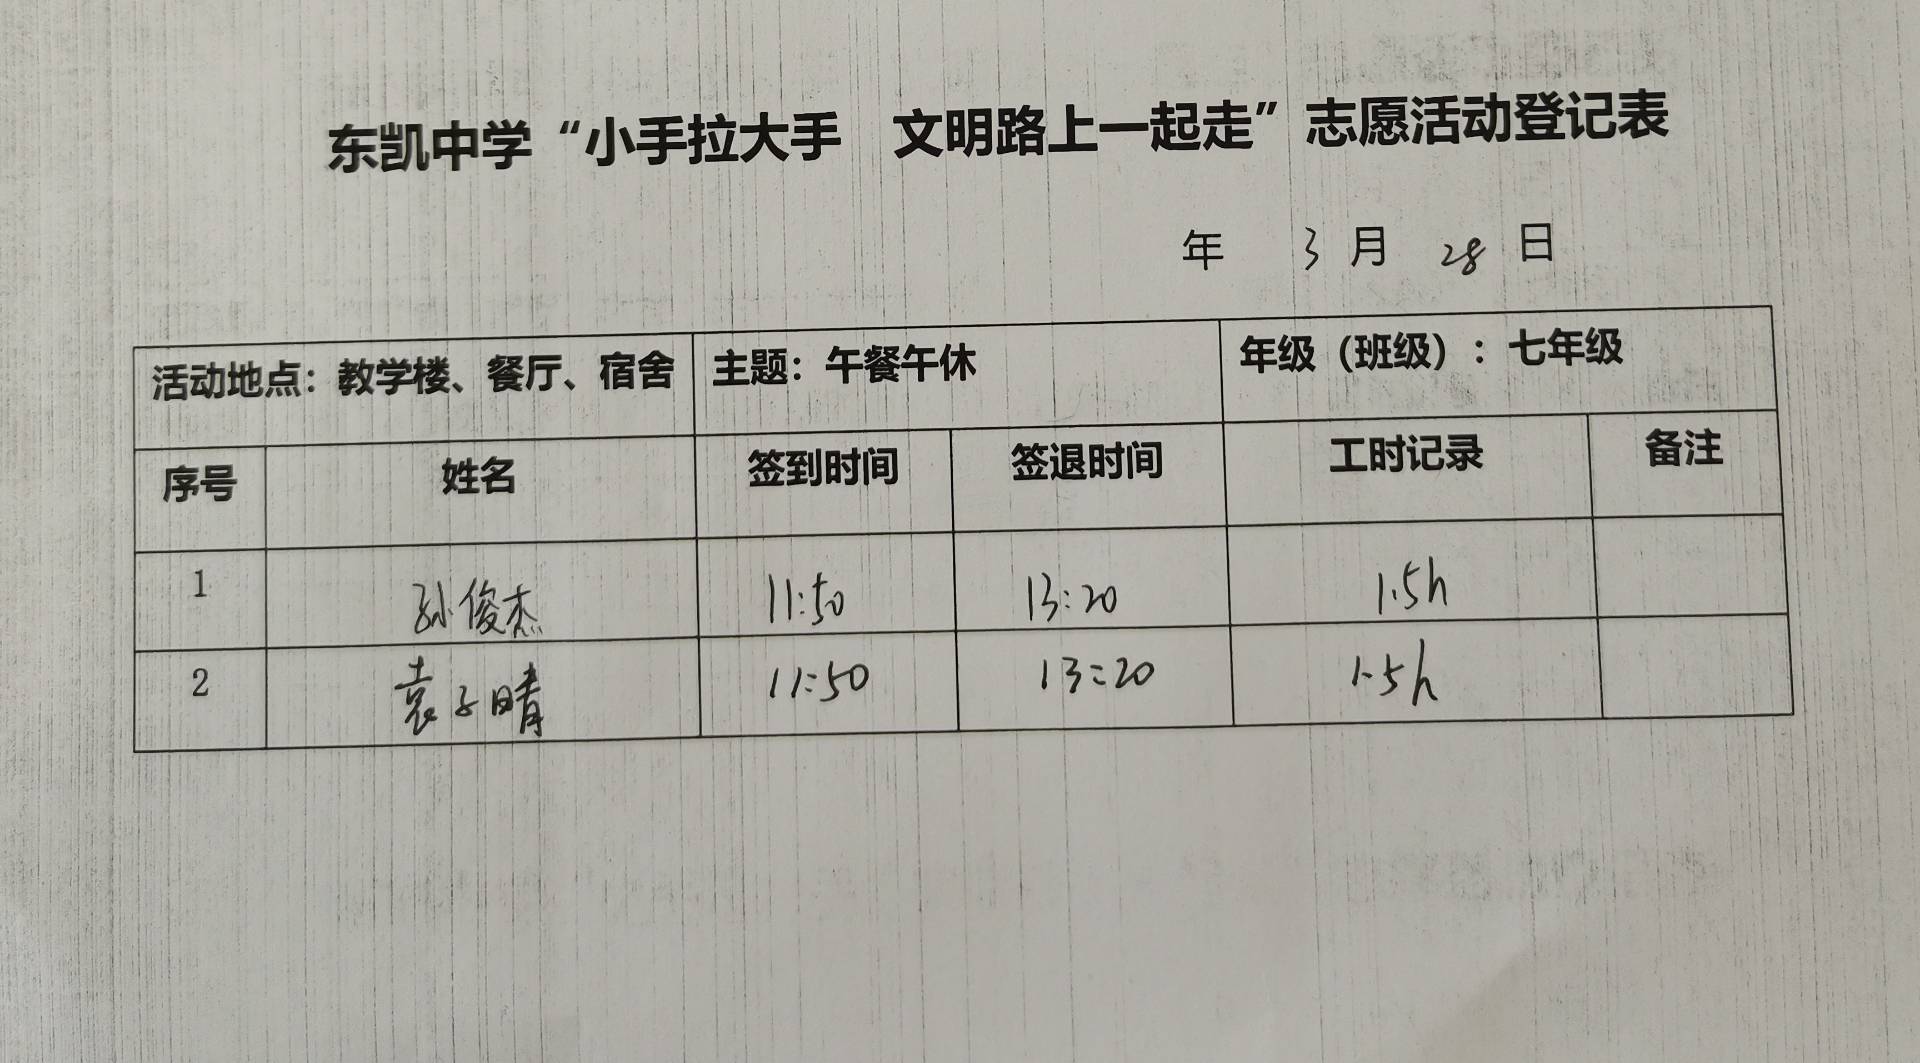 东凯中学“小手拉大手 文明路上一起走”志愿活动登记表
年 3 月 28 日
活动地点：教学楼、餐厅、宿舍 主题：午餐午休 年级（班级）：七年级
序号 姓名 签到时间 签退时间 工时记录 备注
1 孙俊杰 11:50 13:20 1.5h
2 袁子晴 11:50 13:20 1.5h